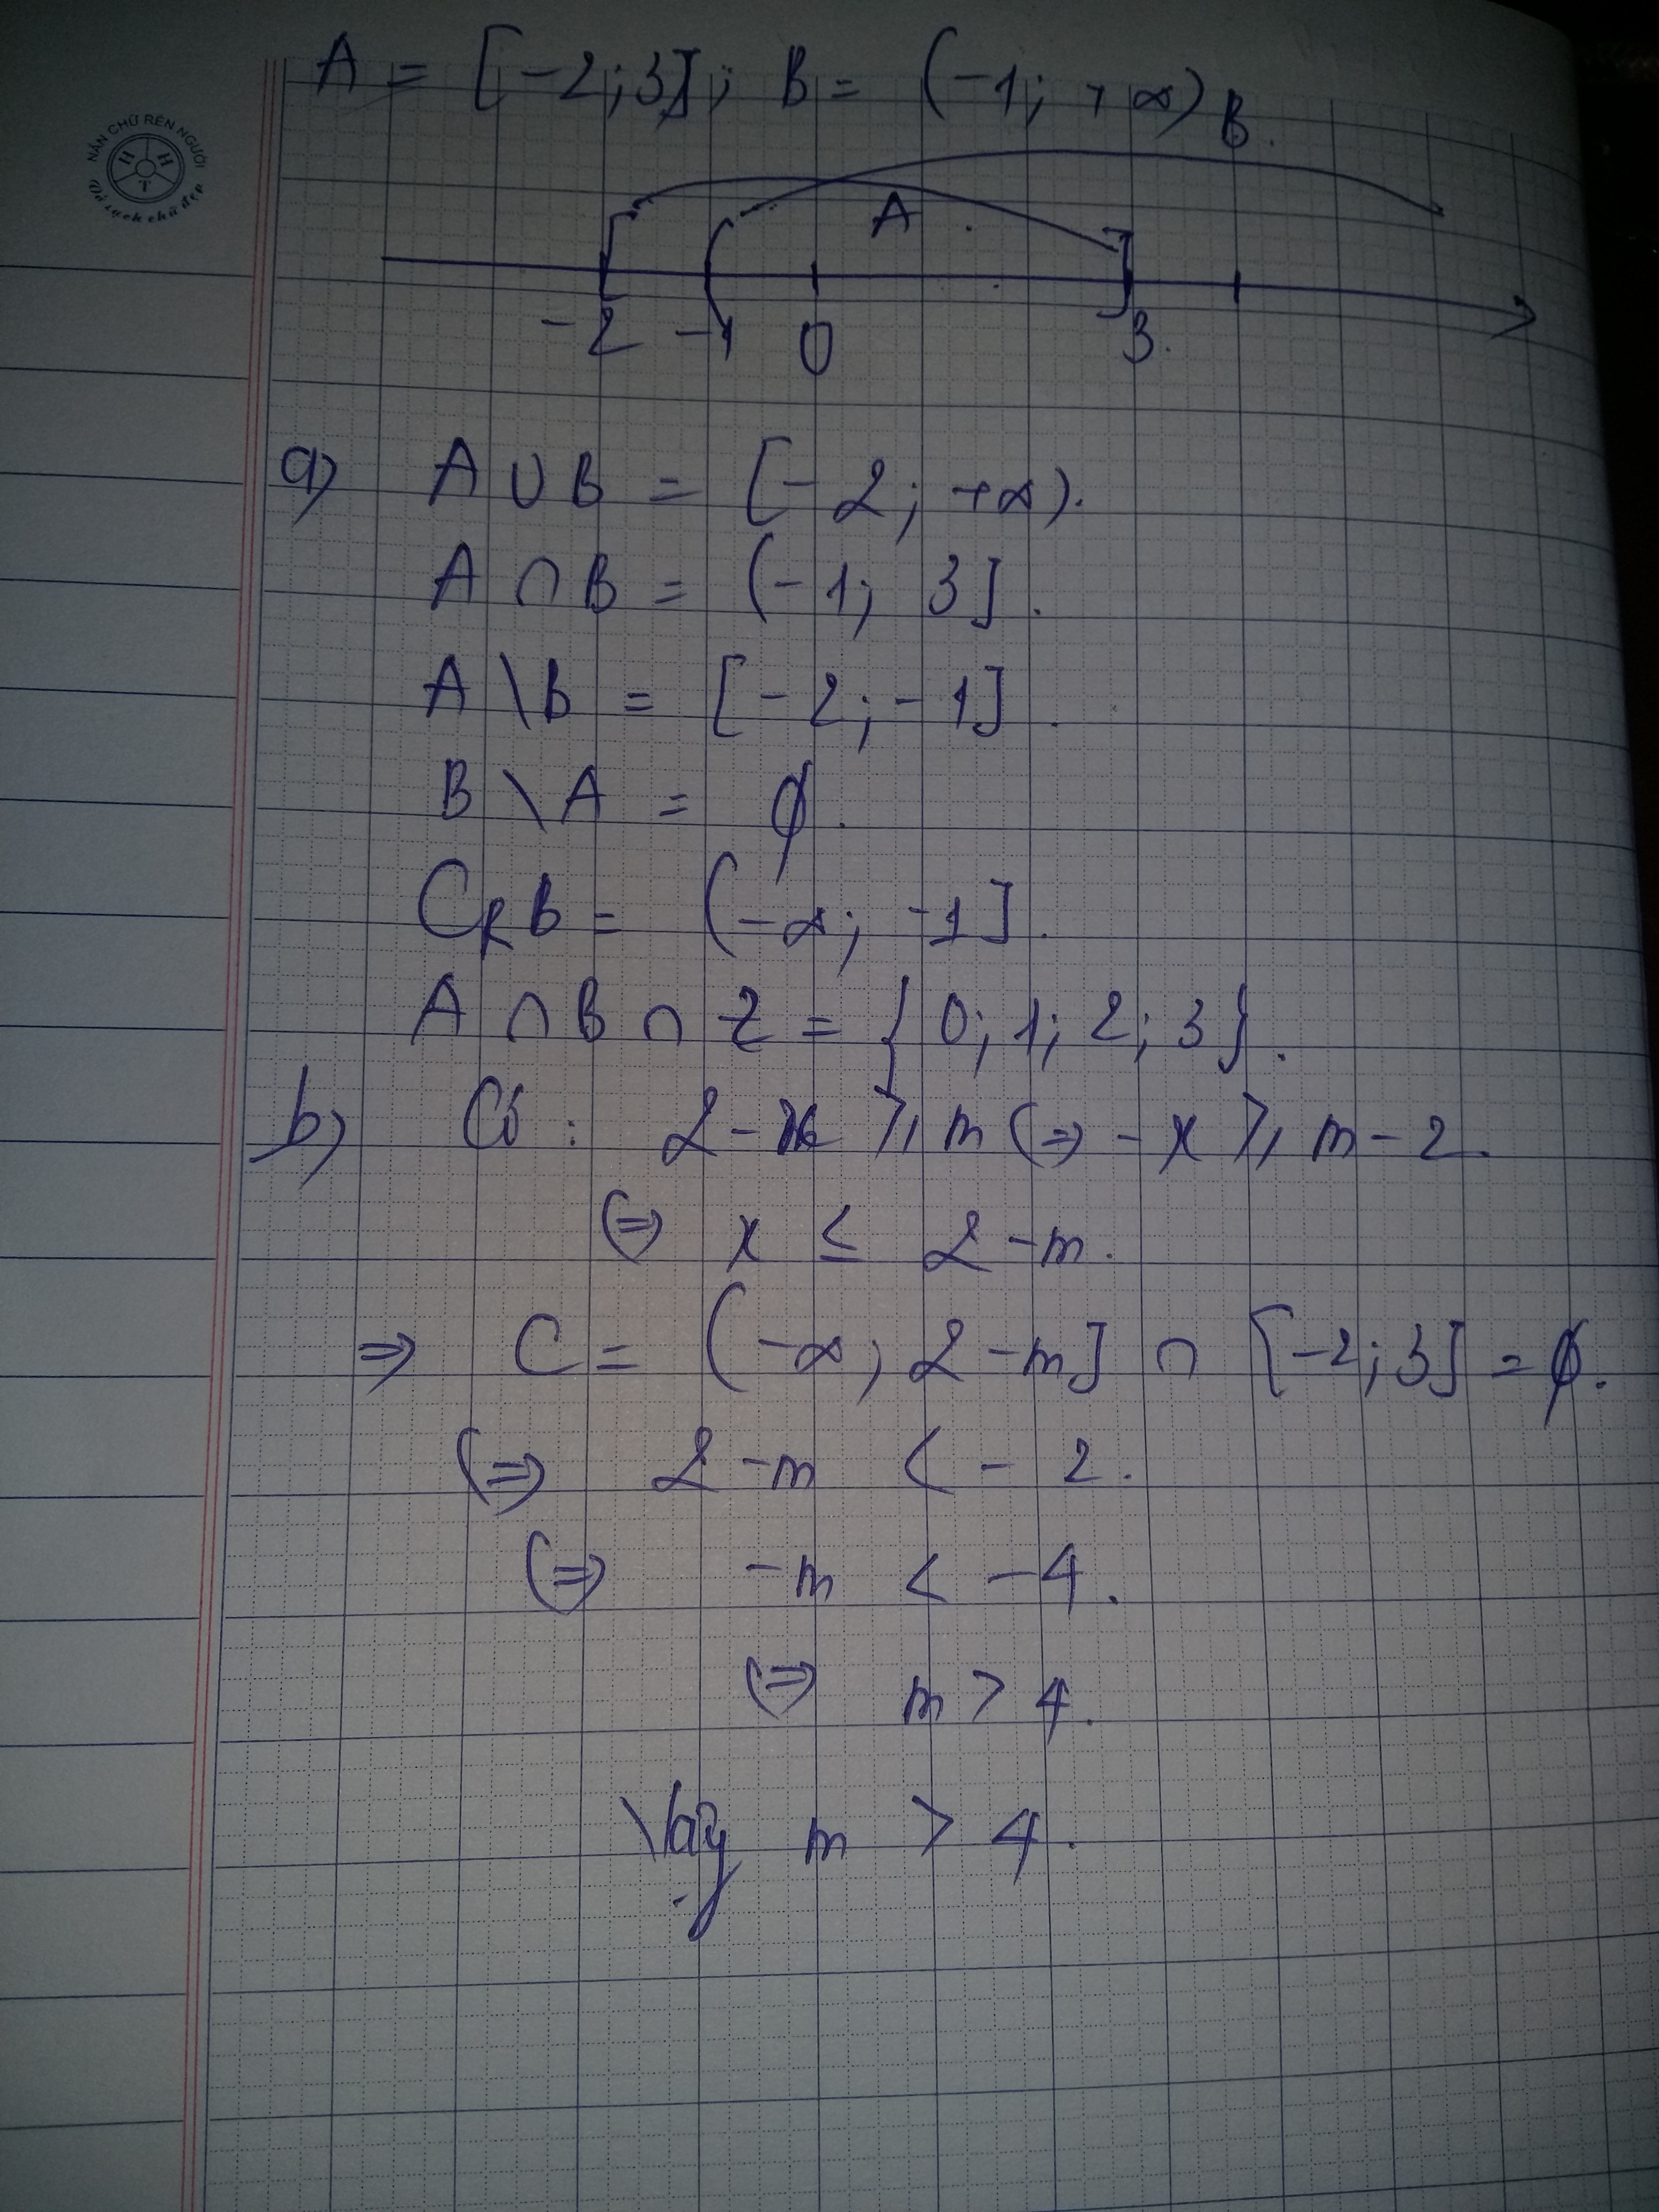 A = [-2; 3]; B = (-1; +∞)
B.
NẮN CHỮ RÈN NGƯỜI
H H
T
Vở sạch chữ đẹp
A
-2 -1 0 3.
a) A ∪ B = [-2; +∞).
A ∩ B = (-1; 3].
A \ B = [-2; -1].
B \ A = ∅.
C_R B = (-∞; -1].
A ∩ B ∩ Z = {0; 1; 2; 3}.
b) Có: 2 - x ⩾ m ⇔ -x ⩾ m - 2.
⇔ x ≤ 2 - m.
⇒ C = (-∞; 2 - m] ∩ [-2; 3] = ∅.
⇔ 2 - m < -2.
⇔ -m < -4.
⇔ m > 4.
Vậy m > 4.